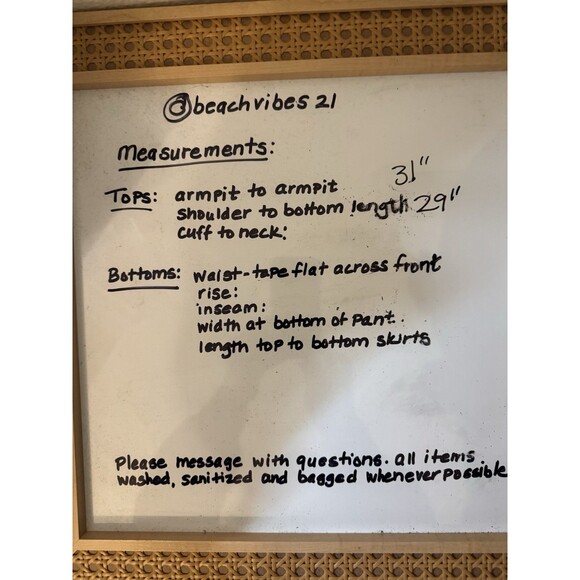 @beachvibes 21
Measurements:
Tops: armpit to armpit 31"
shoulder to bottom length 29"
cuff to neck:
Bottoms: waist-tape flat across front
rise:
inseam:
width at bottom of pant.
length top to bottom skirts
Please message with questions. all items.
washed, sanitized and bagged whenever possible